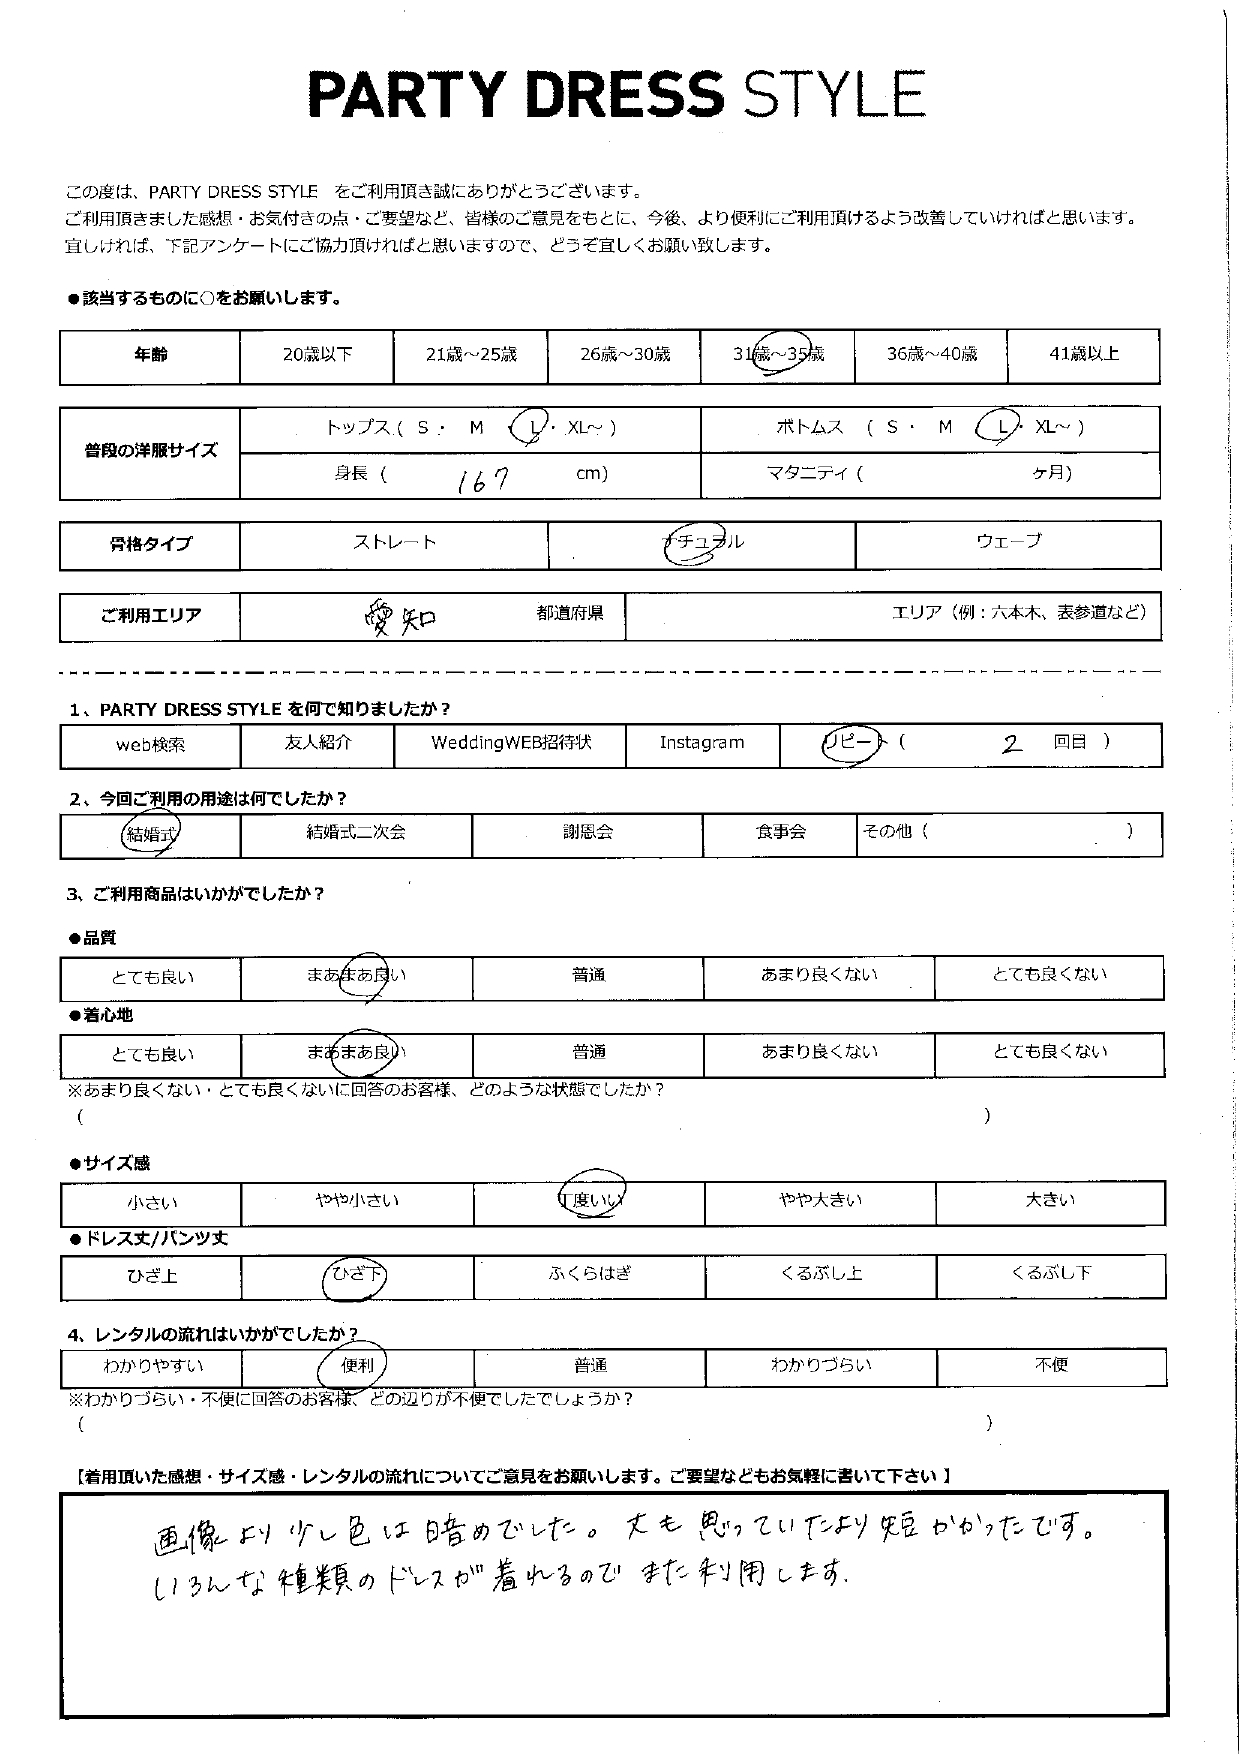 PARTY DRESS STYLE
この度は、PARTY DRESS STYLE をご利用頂き誠にありがとうございます。
ご利用頂きました感想・お気付きの点・ご要望など、皆様のご意見をもとに、今後、より便利にご利用頂けるよう改善していければと思います。
宜しければ、下記アンケートにご協力頂ければと思いますので、どうぞ宜しくお願い致します。
●該当するものに○をお願いします。
年齢 20歳以下 21歳～25歳 26歳～30歳 31歳～35歳 36歳～40歳 41歳以上
普段の洋服サイズ トップス ( S ・ M ・ L ・ XL～ ) ボトムス ( S ・ M ・ L ・ XL～ )
身長 ( 167 cm) マタニティ ( ヶ月)
骨格タイプ ストレート ナチュラル ウェーブ
ご利用エリア 愛知 都道府県 エリア（例：六本木、表参道など）
1、PARTY DRESS STYLE を何で知りましたか？
web検索 友人紹介 WeddingWEB招待状 Instagram リピート ( 2 回目 )
2、今回ご利用の用途は何でしたか？
結婚式 結婚式二次会 謝恩会 食事会 その他 ( )
3、ご利用商品はいかがでしたか？
●品質
とても良い まあまあ良い 普通 あまり良くない とても良くない
●着心地
とても良い まあまあ良い 普通 あまり良くない とても良くない
※あまり良くない・とても良くないに回答のお客様、どのような状態でしたか？
( )
●サイズ感
小さい やや小さい 丁度いい やや大きい 大きい
●ドレス丈/パンツ丈
ひざ上 ひざ下 ふくらはぎ くるぶし上 くるぶし下
4、レンタルの流れはいかがでしたか？
わかりやすい 便利 普通 わかりづらい 不便
※わかりづらい・不便に回答のお客様、どの辺りが不便でしたでしょうか？
( )
【着用頂いた感想・サイズ感・レンタルの流れについてご意見をお願いします。ご要望などもお気軽に書いて下さい 】
画像より少し色は暗めでした。丈も思っていたより短かかったです。
いろんな種類のドレスが着れるのでまた利用します.